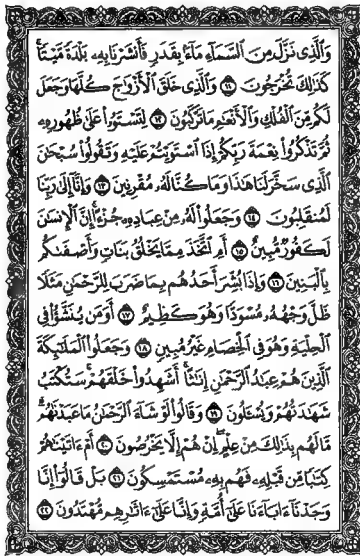 وَالَّذِى نَزَّلَ مِنَ السَّمَآءِ مَآءً بِقَدَرٍ فَأَنشَرْنَا بِهِۦ بَلْدَةً مَّيْتًا
كَذَٰلِكَ تُخْرَجُونَ ١١ وَالَّذِى خَلَقَ الْأَزْوَاجَ كُلَّهَا وَجَعَلَ
لَكُم مِّنَ الْفُلْكِ وَالْأَنْعَٰمِ مَا تَرْكَبُونَ ١٢ لِتَسْتَوُۥا عَلَىٰ ظُهُورِهِۦ
ثُمَّ تَذْكُرُوا نِعْمَةَ رَبِّكُمْ إِذَا اسْتَوَيْتُمْ عَلَيْهِ وَتَقُولُوا سُبْحَٰنَ
الَّذِى سَخَّرَ لَنَا هَٰذَا وَمَا كُنَّا لَهُۥ مُقْرِنِينَ ١٣ وَإِنَّآ إِلَىٰ رَبِّنَا
لَمُنقَلِبُونَ ١٤ وَجَعَلُوا لَهُۥ مِنْ عِبَادِهِۦ جُزْءًا إِنَّ الْإِنسَٰنَ
لَكَفُورٌ مُّبِينٌ ١٥ أَمِ اتَّخَذَ مِمَّا يَخْلُقُ بَنَاتٍ وَأَصْفَىٰكُم
بِالْبَنِينَ ١٦ وَإِذَا بُشِّرَ أَحَدُهُم بِمَا ضَرَبَ لِلرَّحْمَٰنِ مَثَلًا
ظَلَّ وَجْهُهُۥ مُسْوَدًّا وَهُوَ كَظِيمٌ ١٧ أَوَمَن يُنَشَّؤُا فِى
الْحِلْيَةِ وَهُوَ فِى الْخِصَامِ غَيْرُ مُبِينٍ ١٨ وَجَعَلُوا الْمَلَٰٓئِكَةَ
الَّذِينَ هُمْ عِبَٰدُ الرَّحْمَٰنِ إِنَٰثًا أَشَهِدُوا خَلْقَهُمْ سَتُكْتَبُ
شَهَٰدَتُهُمْ وَيُسْـَٔلُونَ ١٩ وَقَالُوا لَوْ شَآءَ الرَّحْمَٰنُ مَا عَبَدْنَٰهُم
مَّا لَهُم بِذَٰلِكَ مِنْ عِلْمٍ إِنْ هُمْ إِلَّا يَخْرُصُونَ ٢٠ أَمْ ءَاتَيْنَٰهُمْ
كِتَٰبًا مِّن قَبْلِهِۦ فَهُم بِهِۦ مُسْتَمْسِكُونَ ٢١ بَلْ قَالُوٓا إِنَّا
وَجَدْنَآ ءَابَآءَنَا عَلَىٰٓ أُمَّةٍ وَإِنَّا عَلَىٰٓ ءَاثَٰرِهِم مُّهْتَدُونَ ٢٢